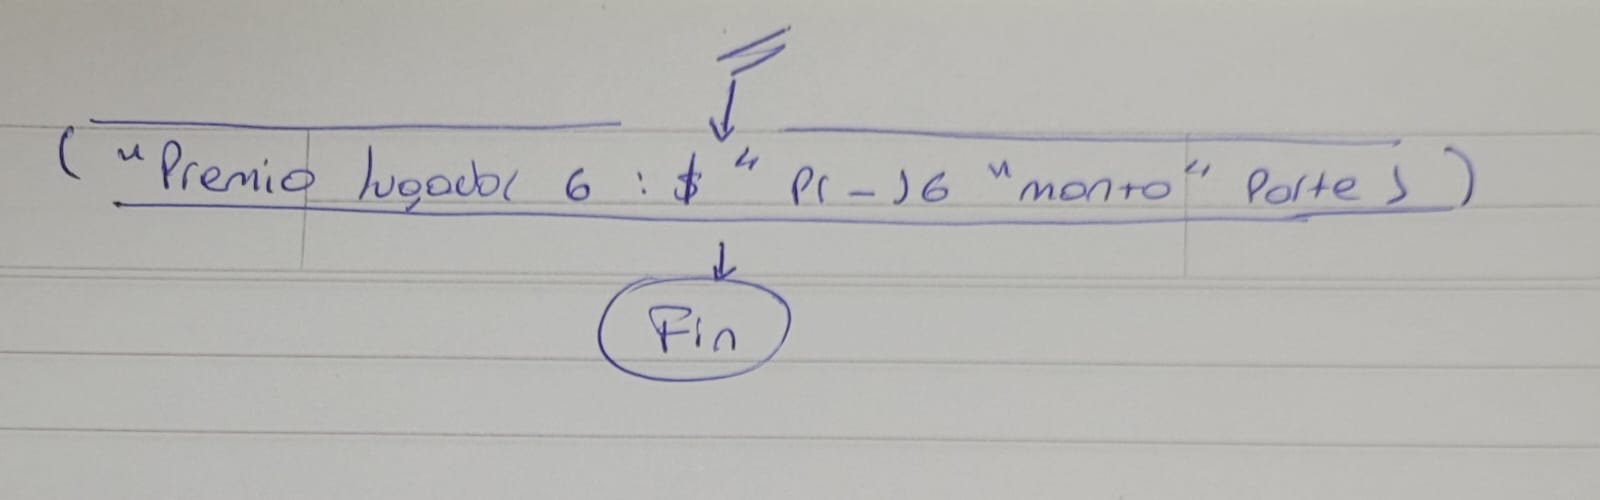 ( "Premio Jugador 6 : $ " Pr - J6 "monto" Porte J )
Fin